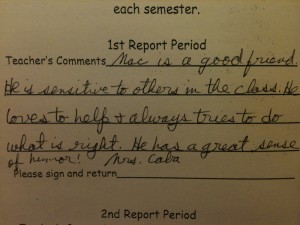 each semester.
1st Report Period
Teacher's Comments Mac is a good friend.
He is sensitive to others in the class. He
loves to help & always tries to do
what is right. He has a great sense
of humor! Mrs. Caba
Please sign and return
2nd Report Period